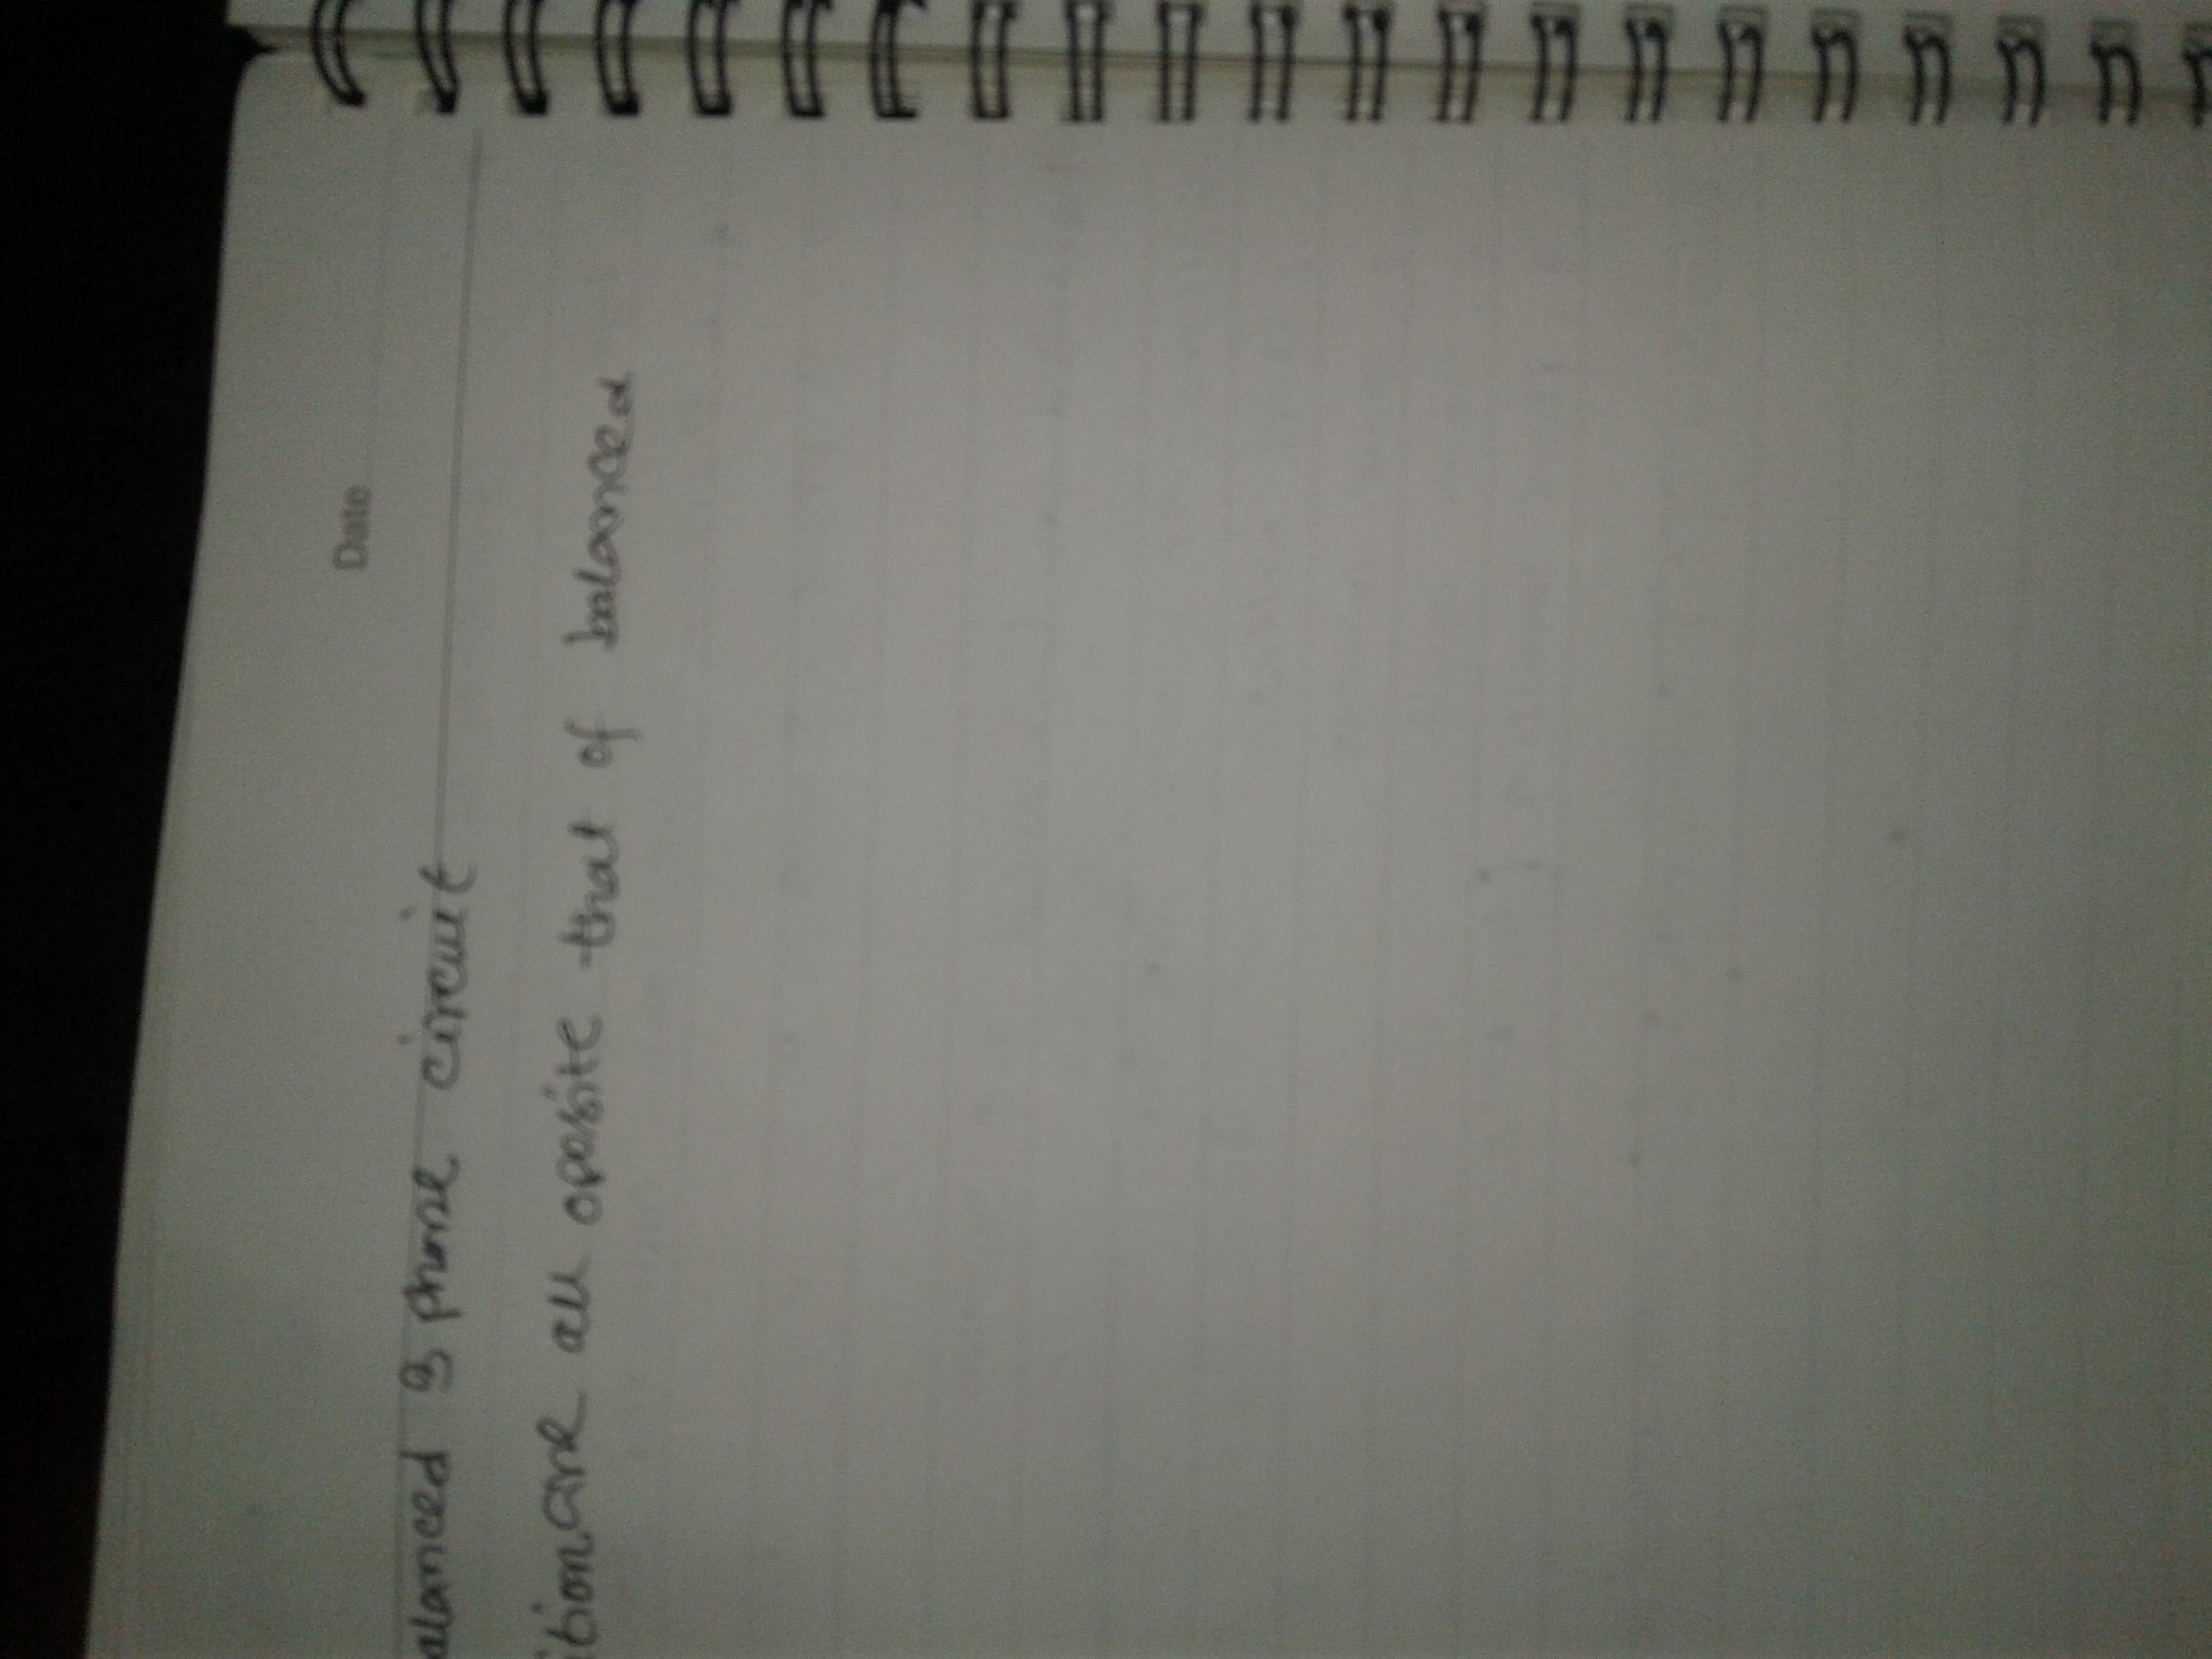 Date
alanced 3 phase circuit
ition are all oposite that of balanced